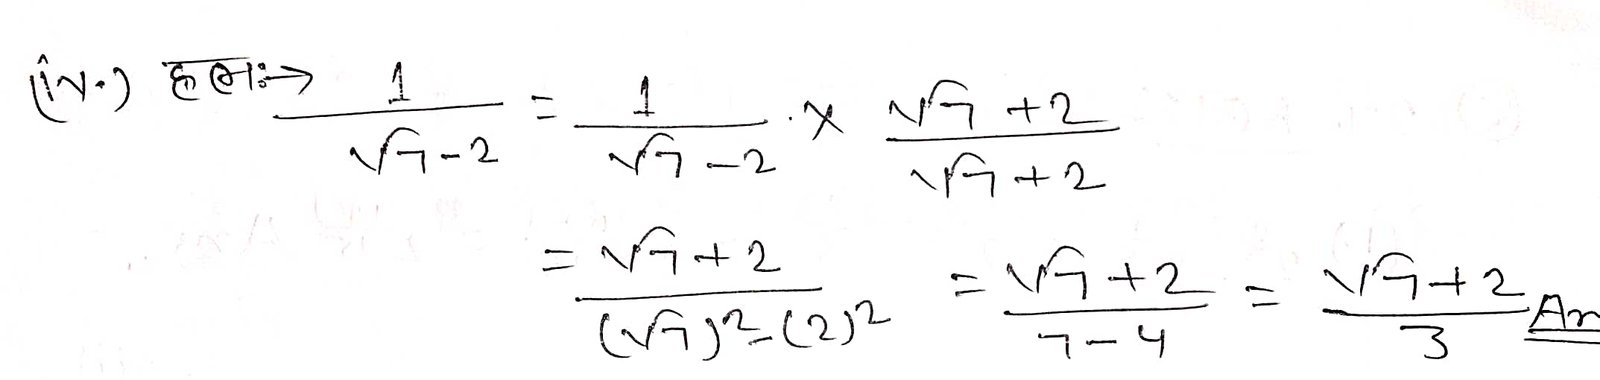 (iv.) हलः→ 1/(√7-2) = 1/(√7-2) × (√7+2)/(√7+2)
= (√7+2)/((√7)²-(2)²) = (√7+2)/(7-4) = (√7+2)/3 An